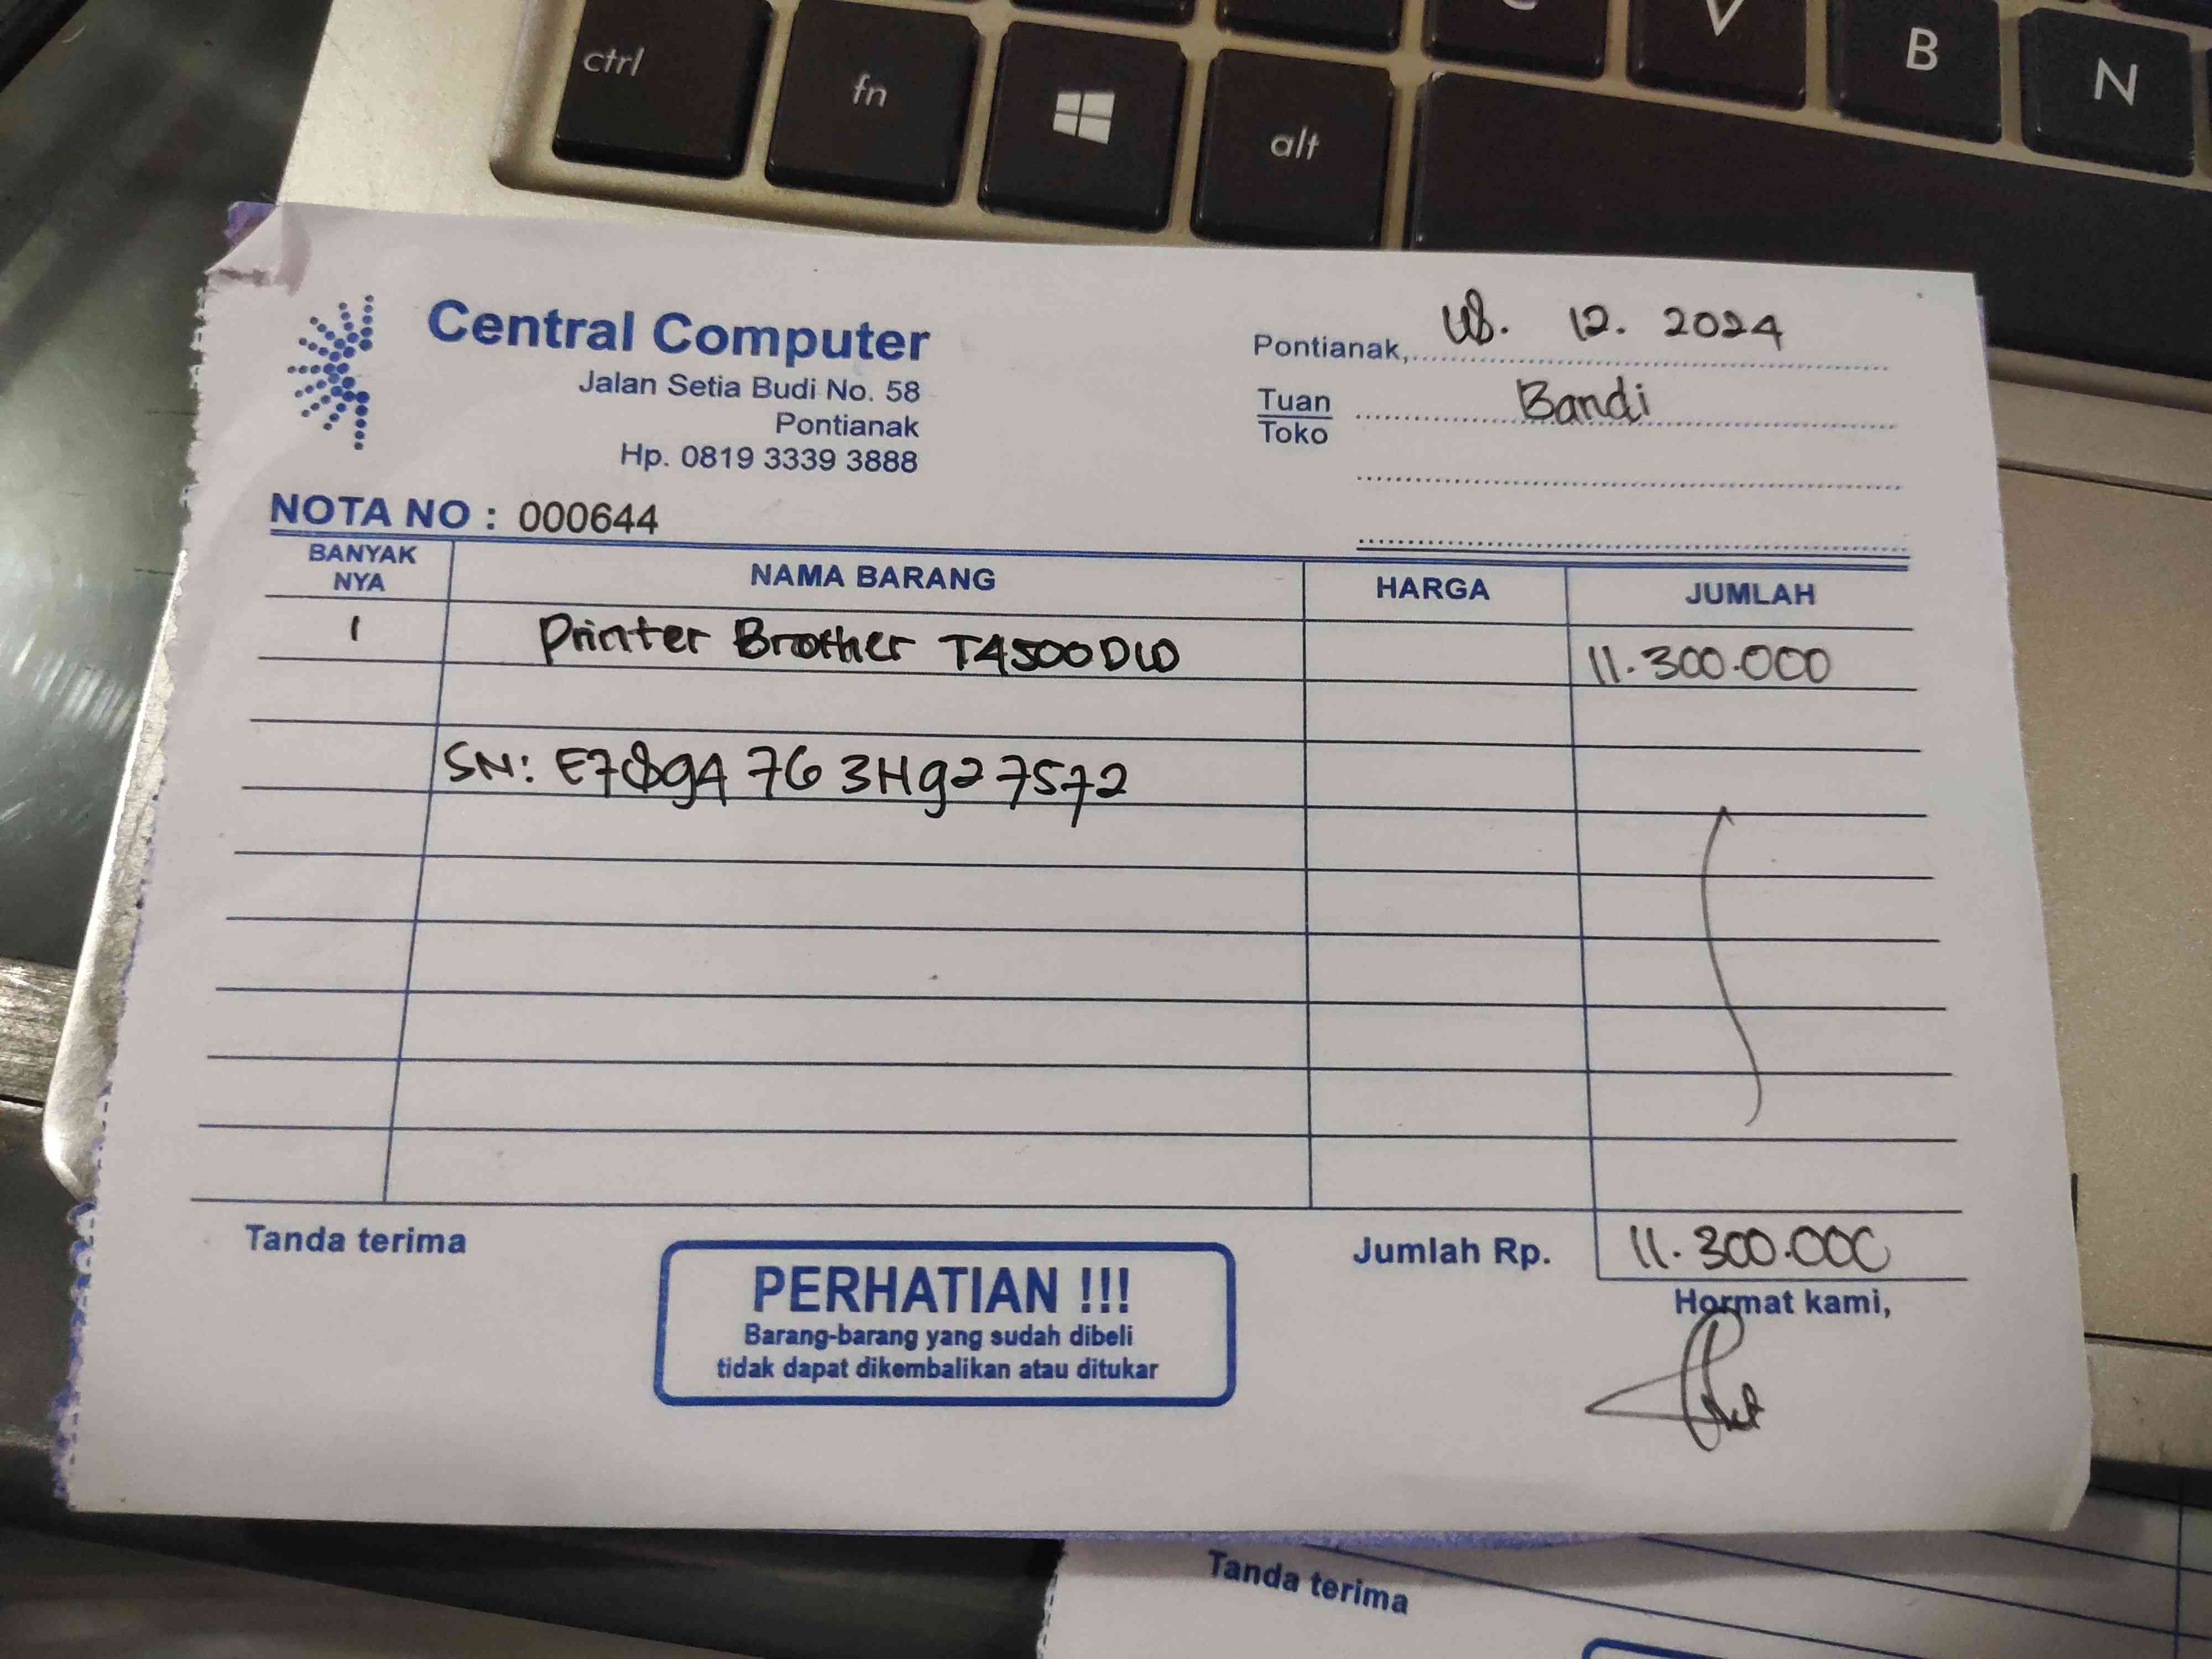 ctrl
fn
alt
V
B
N
Central Computer
Jalan Setia Budi No. 58
Pontianak
Hp. 0819 3339 3888
Pontianak, 12. 2024
Tuan
Toko
Bandi
NOTA NO : 000644
BANYAK NYA NAMA BARANG HARGA JUMLAH
1 Printer Brother T4500DW 11.300.000
SN: E78gA7G3Hg27572
Tanda terima
Jumlah Rp. 11.300.000
PERHATIAN !!!
Barang-barang yang sudah dibeli
tidak dapat dikembalikan atau ditukar
Hormat kami,
Tanda terima